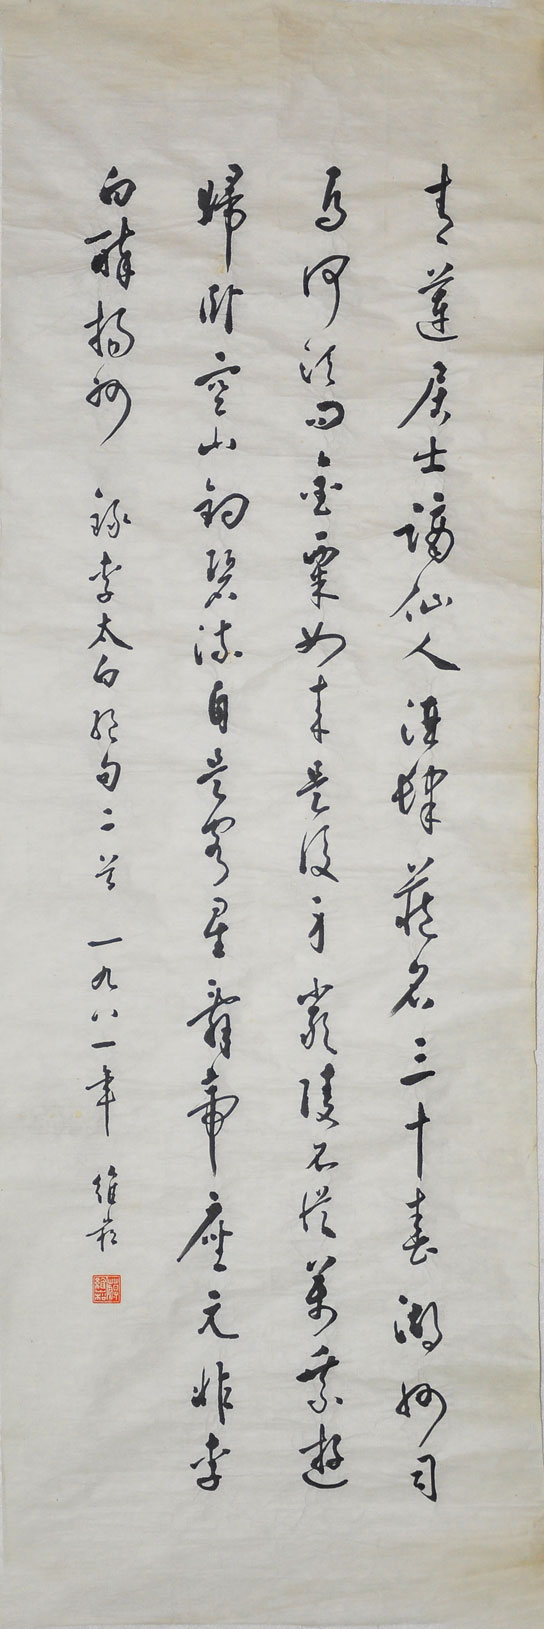 青蓮居士謫仙人酒肆藏名三十春湖州司
馬何須問金粟如來是後身嚴陵不從萬乘遊
歸臥空山釣碧流自是客星辭帝座元非李
白醉揚州 錄李太白絕句二首 一九八一年 維崧